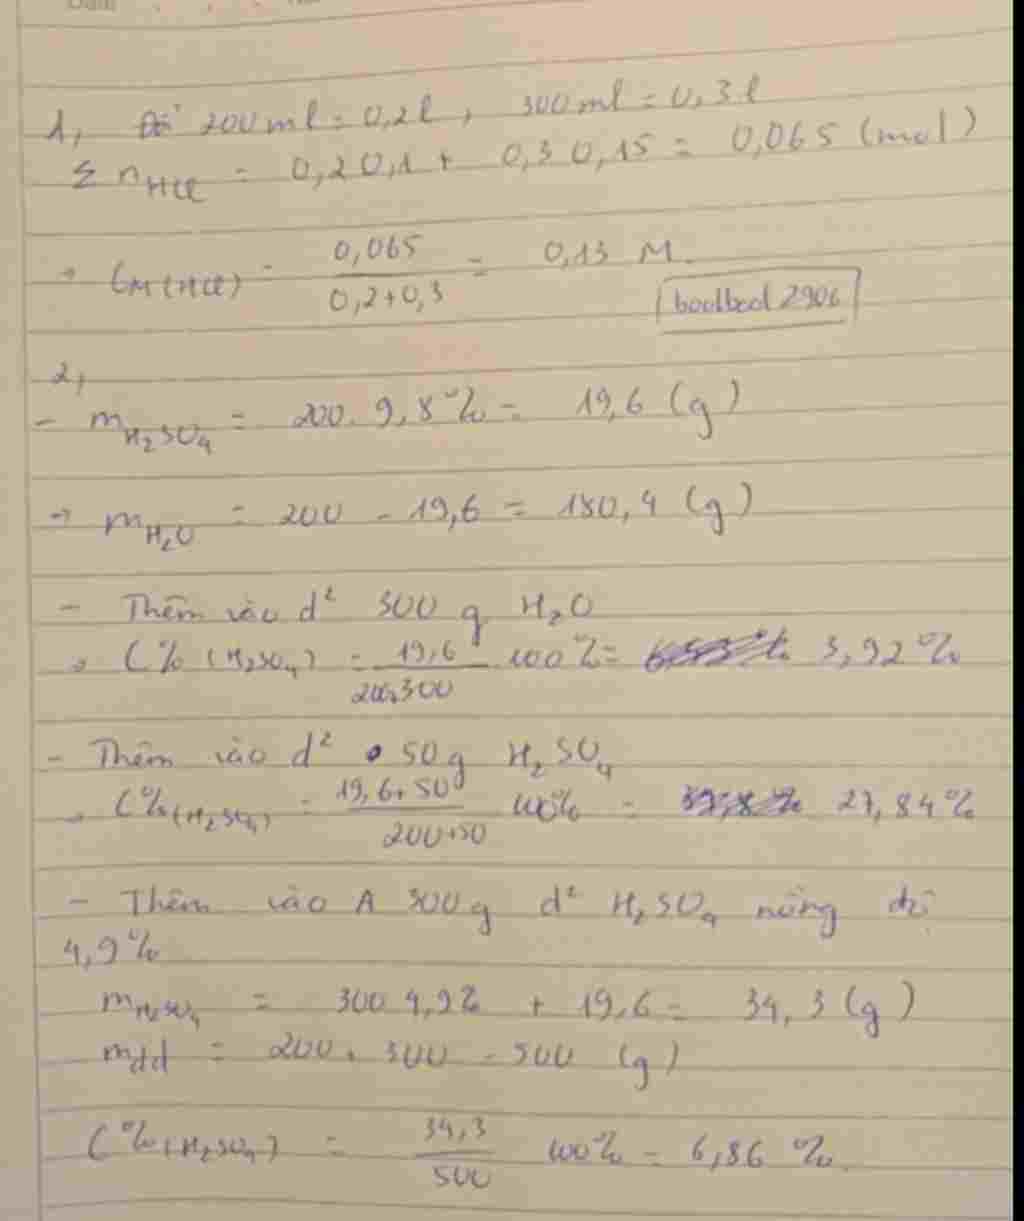 1, Đổi 200ml = 0,2l, 300ml = 0,3l
Σ nHCl = 0,2.0,1 + 0,3.0,15 = 0,065 (mol)
→ CM(HCl) = 0,065 / 0,2+0,3 = 0,13 M.
boolbool2906
2,
- mH2SO4 = 200.9,8% = 19,6 (g)
→ mH2O = 200 - 19,6 = 180,4 (g)
- Thêm vào d² 300g H2O
→ C%(H2SO4) = 19,6 / 200+300 . 100% = 3,92%
- Thêm vào d² 50g H2SO4
→ C%(H2SO4) = 19,6+50 / 200+50 . 100% = 27,84%
- Thêm vào A 300g d² H2SO4 nồng độ
4,9%
mH2SO4 = 300.4,9% + 19,6 = 34,3 (g)
mdd = 200 + 300 = 500 (g)
C%(H2SO4) = 34,3 / 500 . 100% = 6,86 %.